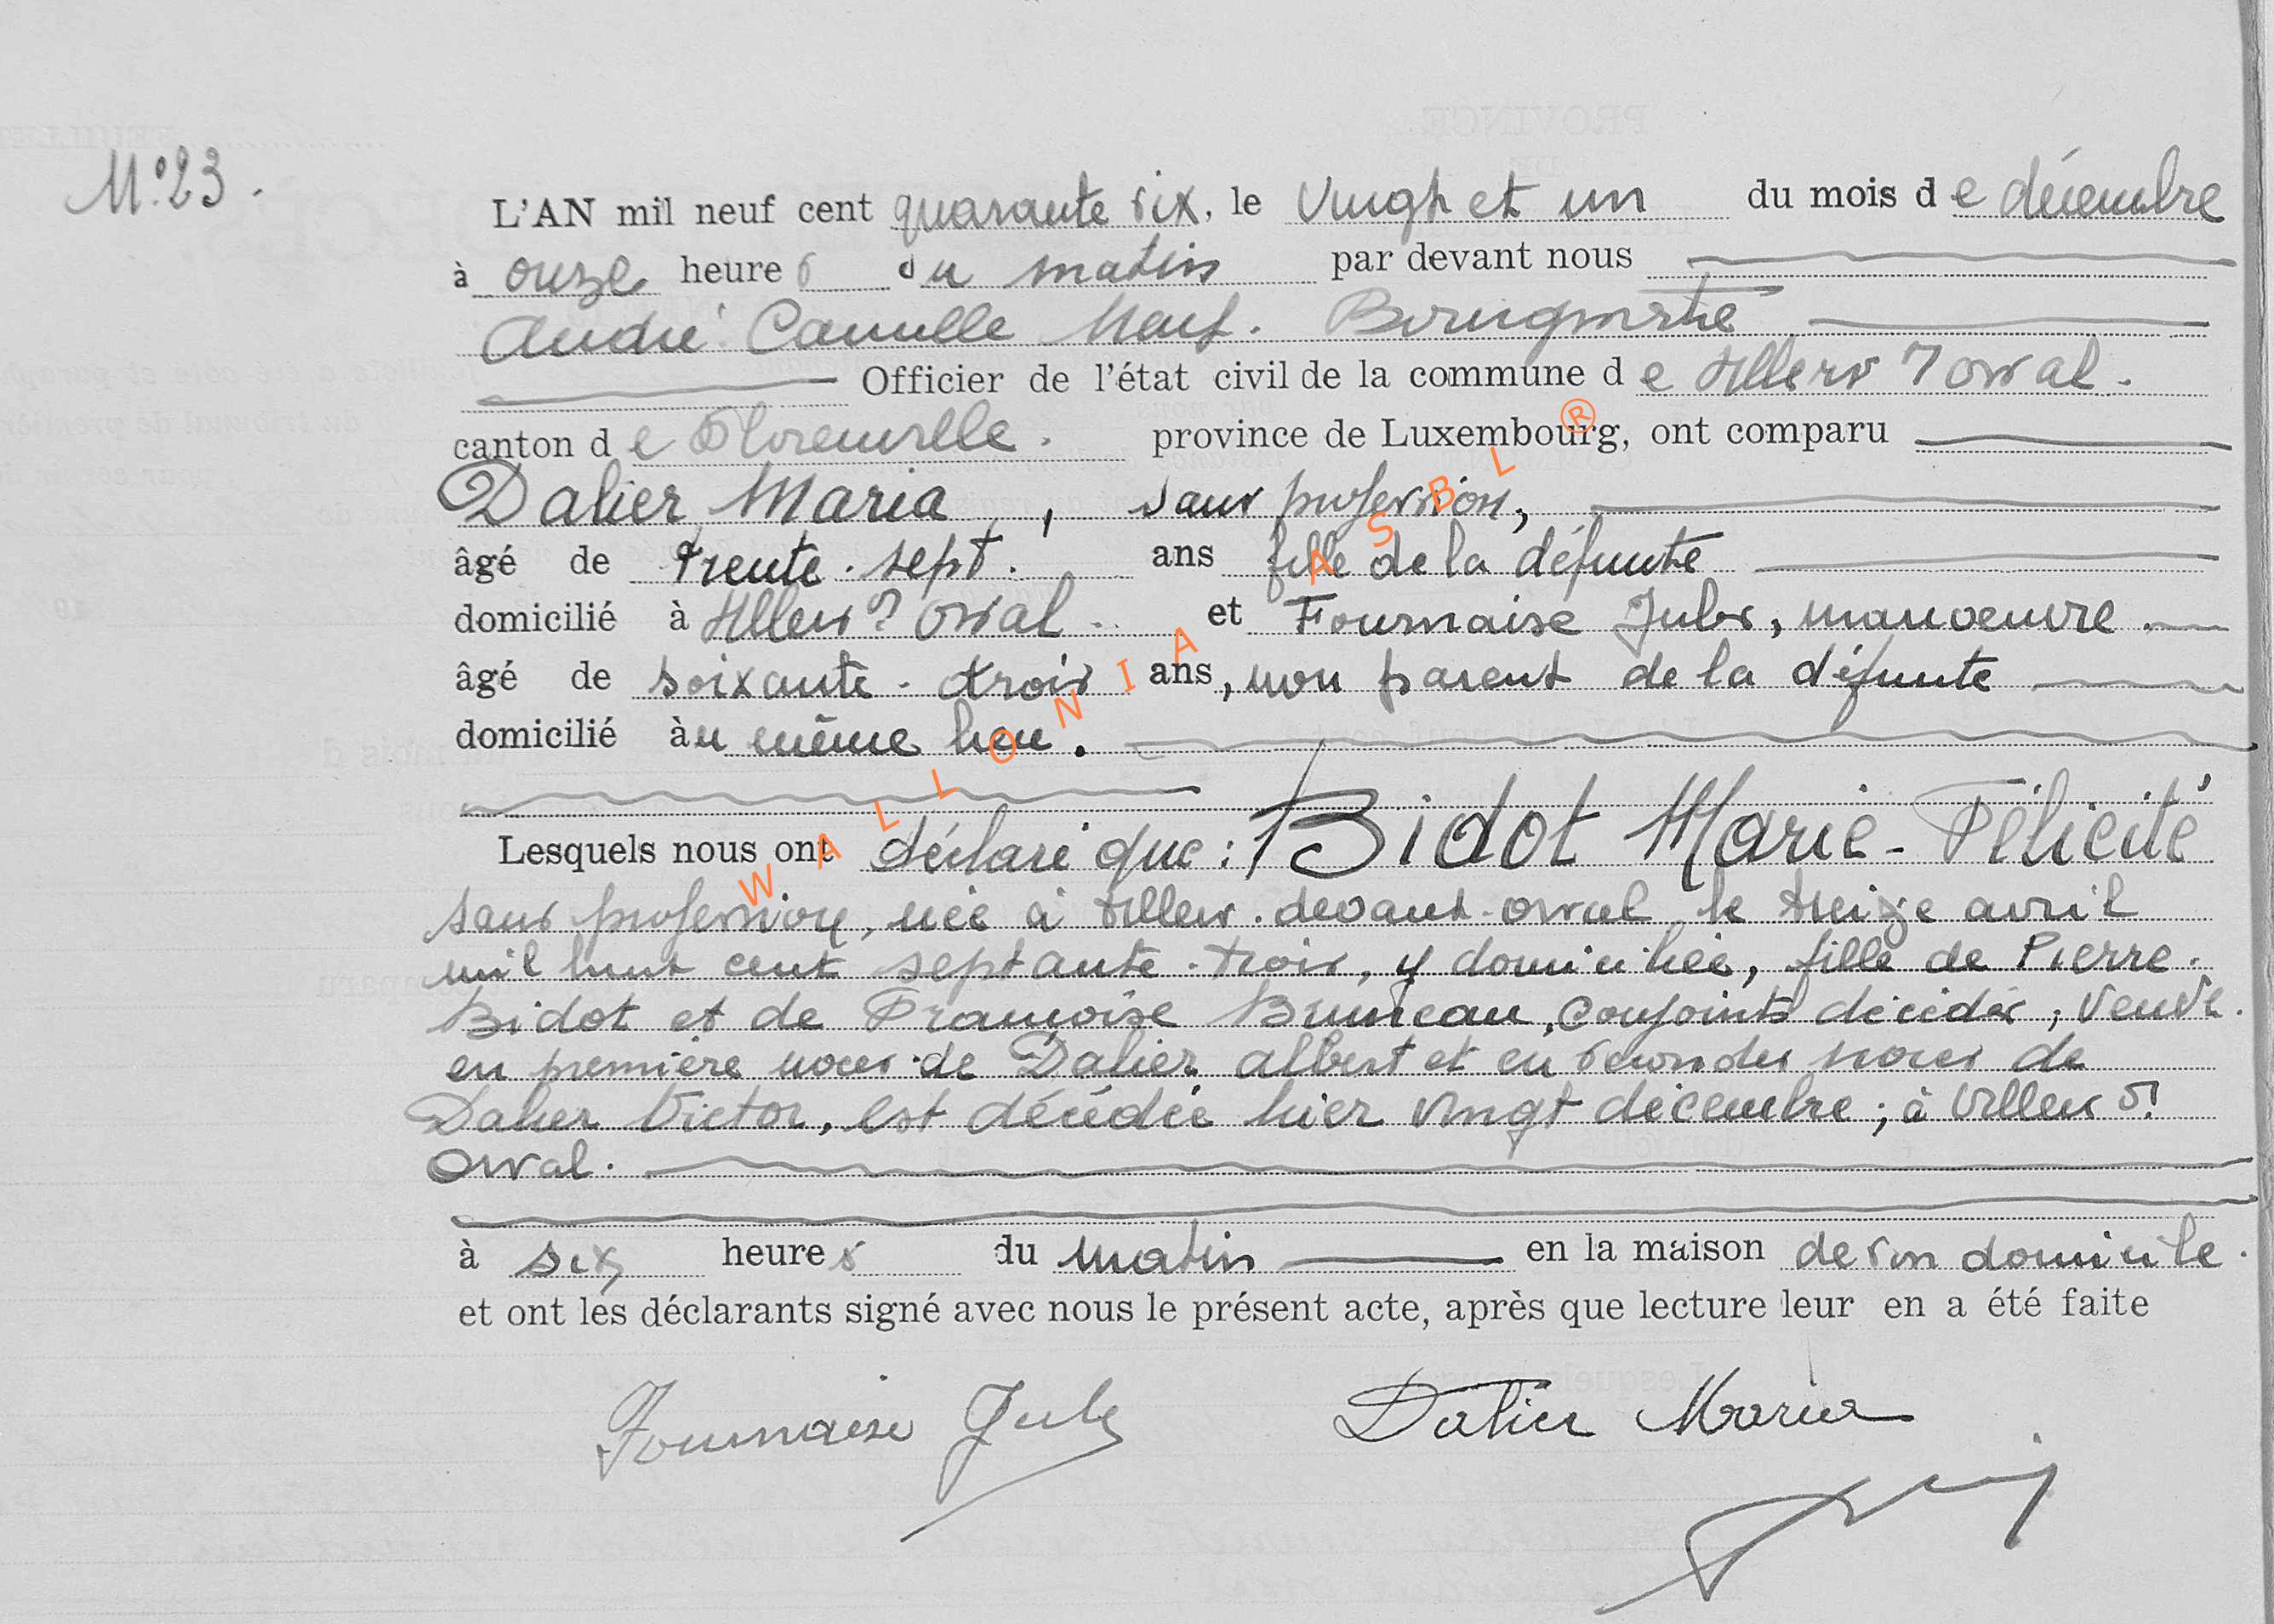 N° 23.
L'AN mil neuf cent quarante six, le Vingt et un du mois de décembre
à onze heures du matin par devant nous
André Camille Officier de l'état civil de la commune de Villers d' Orval.
canton de Florenville. province de Luxembourg, ont comparu
Dalier Maria, sans profession,
âgé de Trente-sept. ans fille de la défunte
domicilié à Villers d' Orval. et Fournaise Jules, manoeuvre.
âgé de soixante-trois ans, non parent de la défunte
domicilié àu même lieu.
Lesquels nous ont déclaré que: Bidot Marie-Félicité
sans profession, née à Villers-devant-Orval le treize avril
mil huit cent septante-trois, y domiciliée, fille de Pierre
Bidot et de Françoise Bruneau, conjoints décédés, veuve
en première noces de Dalier Albert et en secondes noces de
Dalier Victor, est décédée hier vingt décembre; à Villers d'
Orval.
à six heures du matin en la maison de son domicile.
et ont les déclarants signé avec nous le présent acte, après que lecture leur en a été faite
Fournaise Jules Dalier Maria
WALLONIA ASBL ®